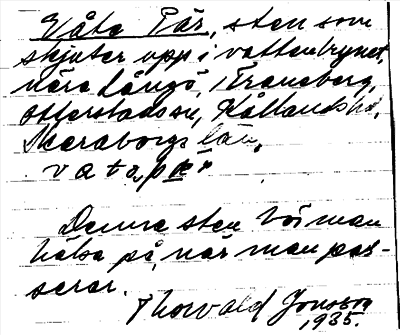 Våta Pär, sten som
skjuter upp i vattenbrynet,
nära Långö, Traneberg,
Otterstads sn, Kållandshd,
Skaraborgs län.
vatapär
Denna sten bör man
hälsa på, när man pas-
serar.
Thorvald Jonsson
1935.